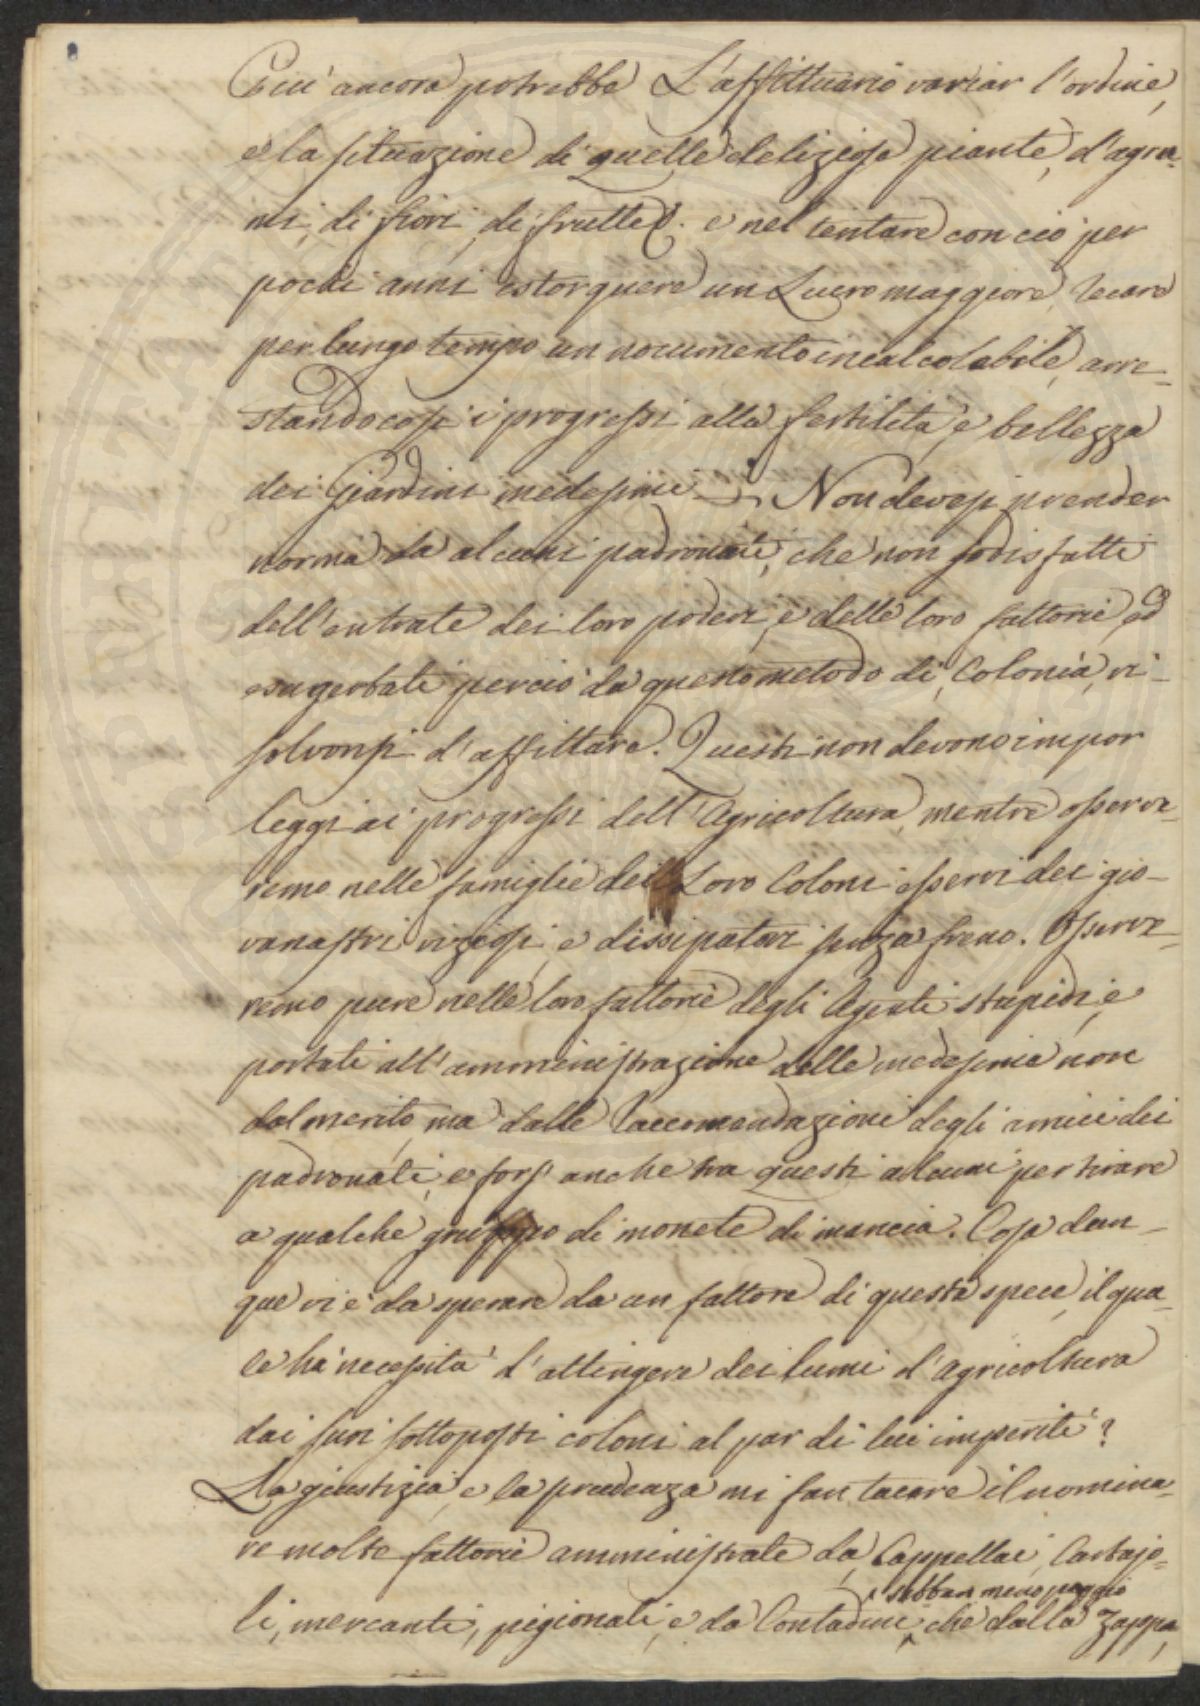 Più ancora potrebbe L'affittuario variar l'ordine,
e la situazione di quelle deliziose piante, d'agru=
mi, di fiori, di frutte &. e nel tentare con ciò per
pochi anni estorquere un Lucro maggiore, recare
per lungo tempo un nocumento incalcolabile, arre=
stando così i progressi alla fertilità, e bellezza
dei Giardini medesimi Non devesi prender
norma da alcuni padronati, che non sodisfatti
dell'entrate dei loro poderi, e delle loro fattorie, ed
esagerbati perciò da questo metodo di Colonìa, ri=
solvonsi d'affittare. Questi non devono impor
leggi ai progressi dell'Agricoltura, mentre osserve=
remo nelle famiglie dei Loro Coloni esservi dei gio=
vanastri viziosi, e dissipatori senza freno. Osserve=
remo pure nelle loro fattorie degli Agenti stupidi, e
portati all'amministrazione delle medesime non
dal merito, ma dalle raccomandazioni degli amici dei
padronali, e fors' anche tra questi alcuni per tirare
a qualche gruppo di monete di mancia. Cosa dun=
que vi è da sperare da un fattore di questa spece, il qua=
le ha necessità d'attingere dei lumi d'agricoltura
dai suoi sottoposti coloni al par di lui imperiti?
La giustizia, e la prudenza mi fan tacere il nomina=
re molte fattorie amministrate da Cappellai, Cartajo=
sebben meno peggio
li, mercanti, pigionali, e da Contadini, che dalla zappa,